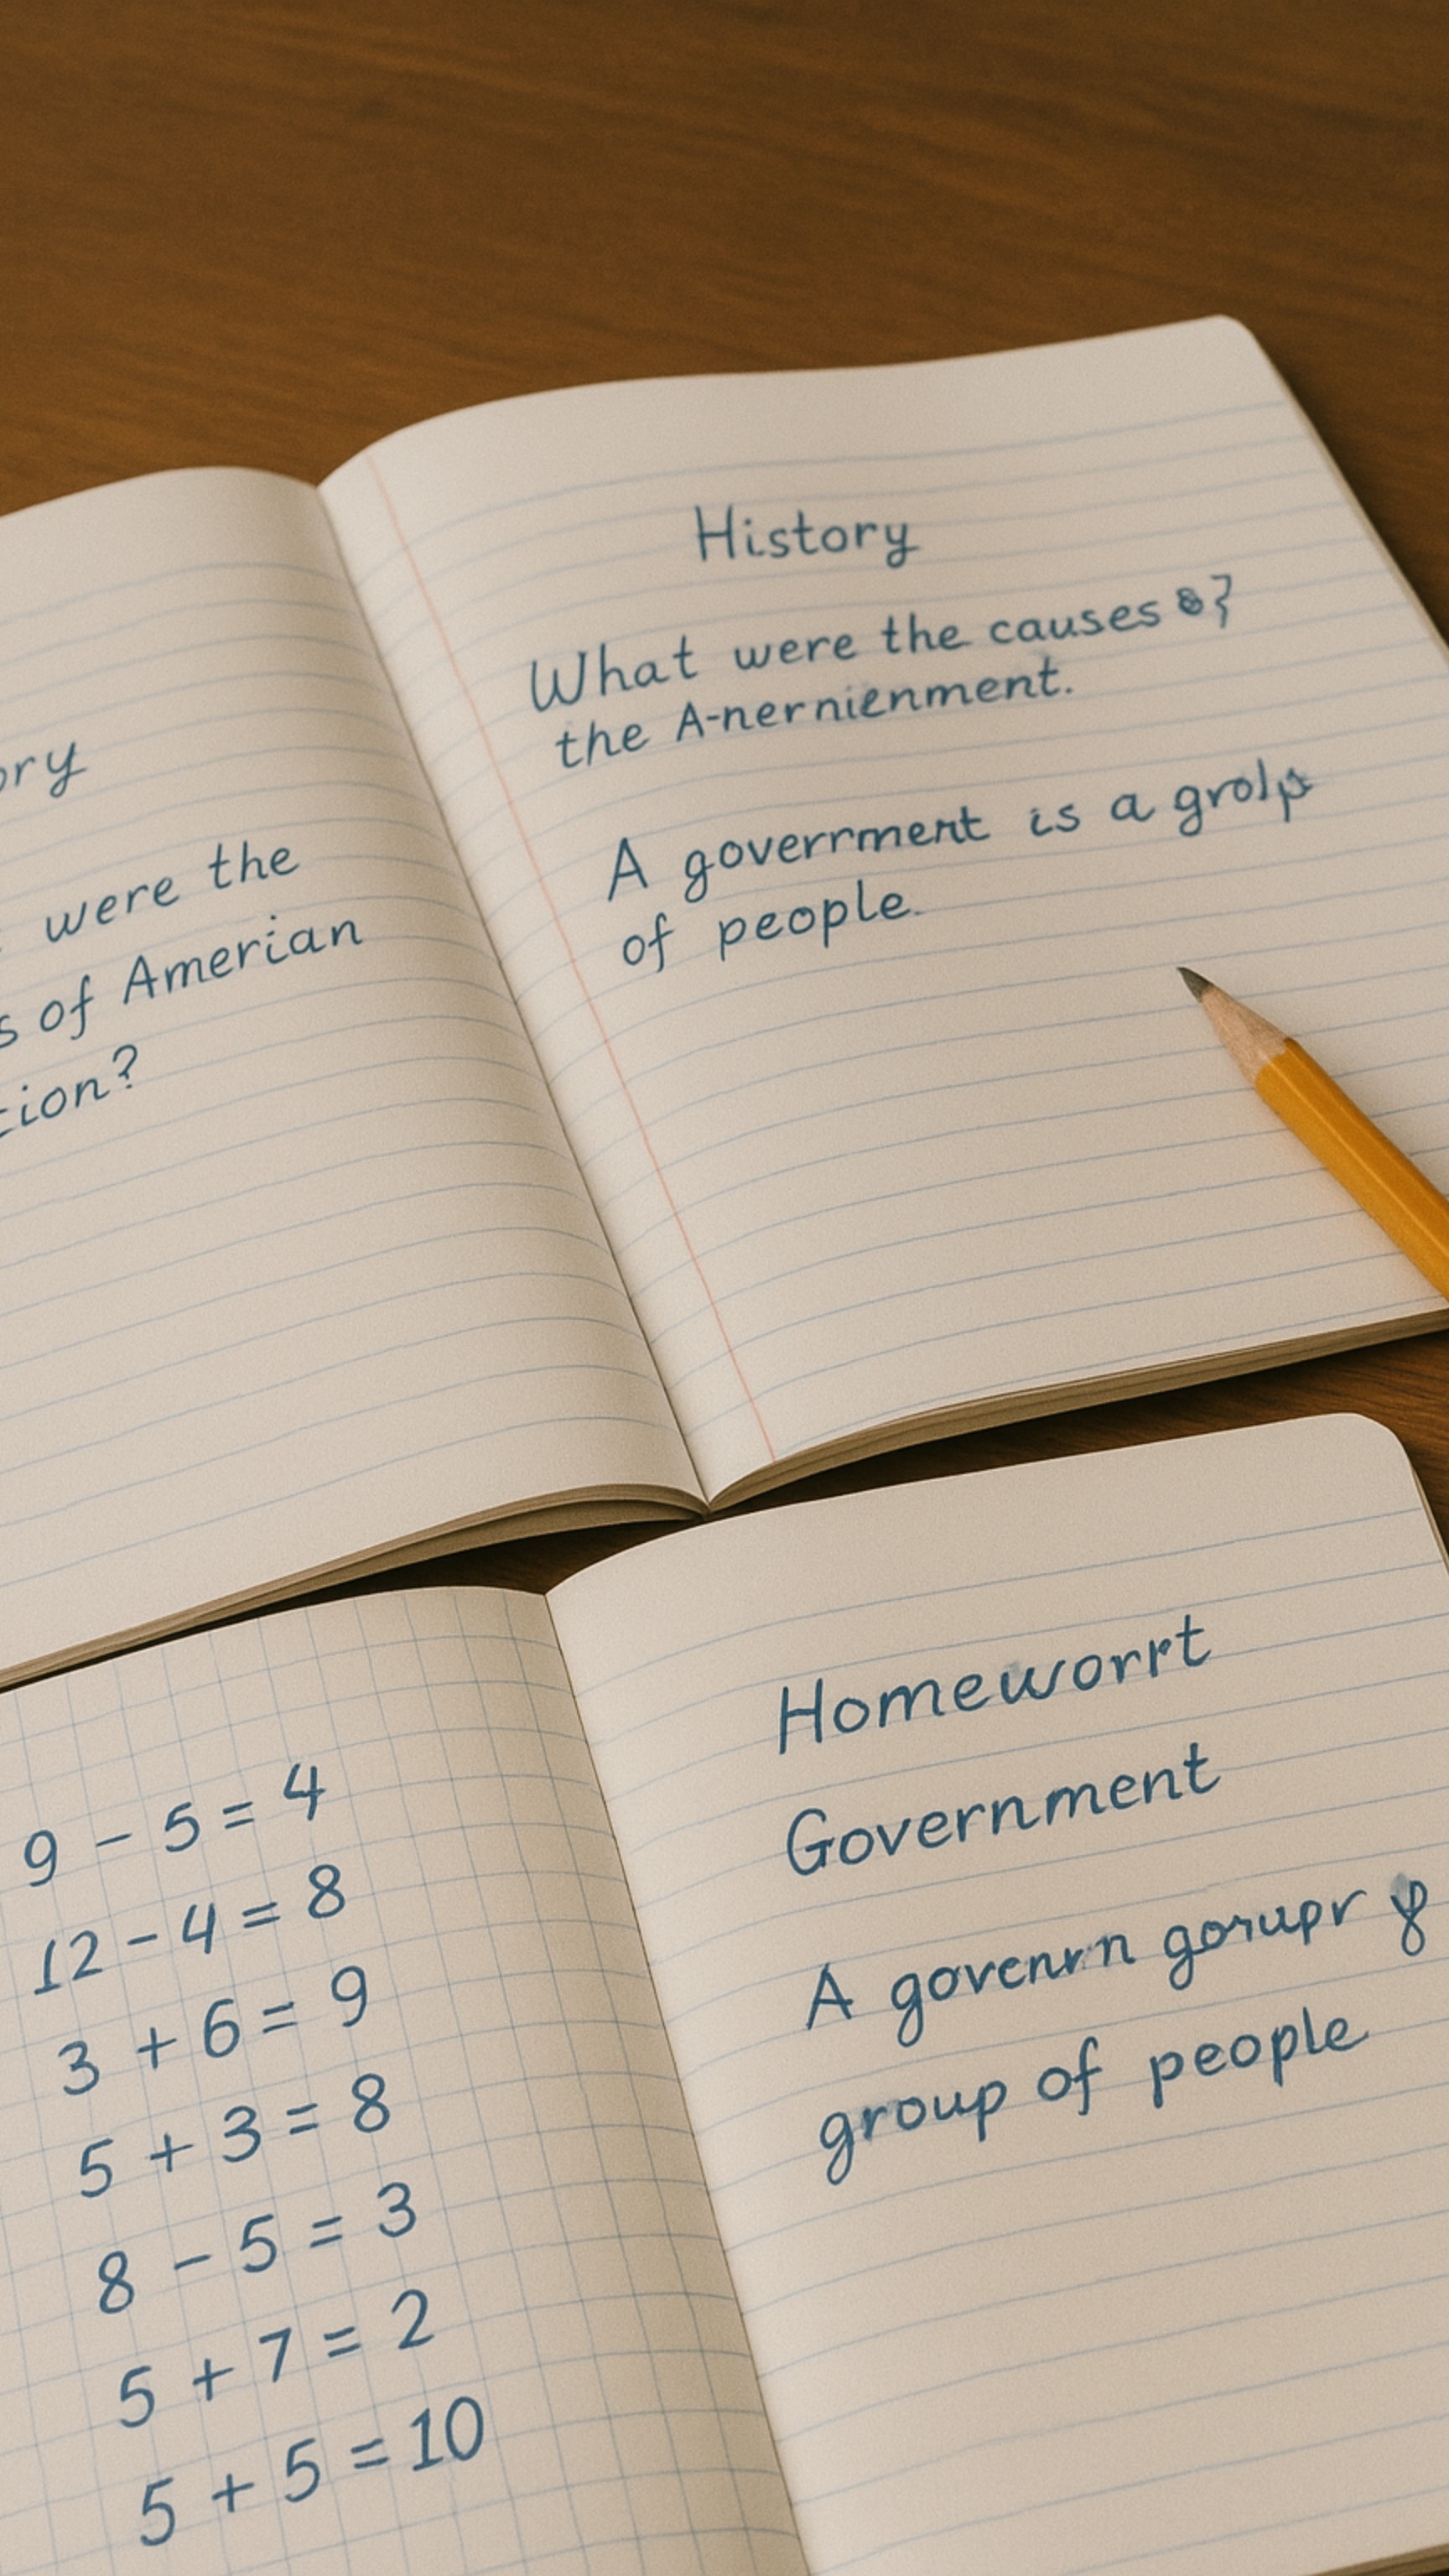 ory
were the
s of Amerian
tion?
History
What were the causes
the A-nernienment.
A goverrment is a
of people.
9 - 5 = 4
12 - 4 = 8
3 + 6 = 9
5 + 3 = 8
8 - 5 = 3
5 + 7 = 2
5 + 5 = 10
Homeworrt
Government
A
group of people